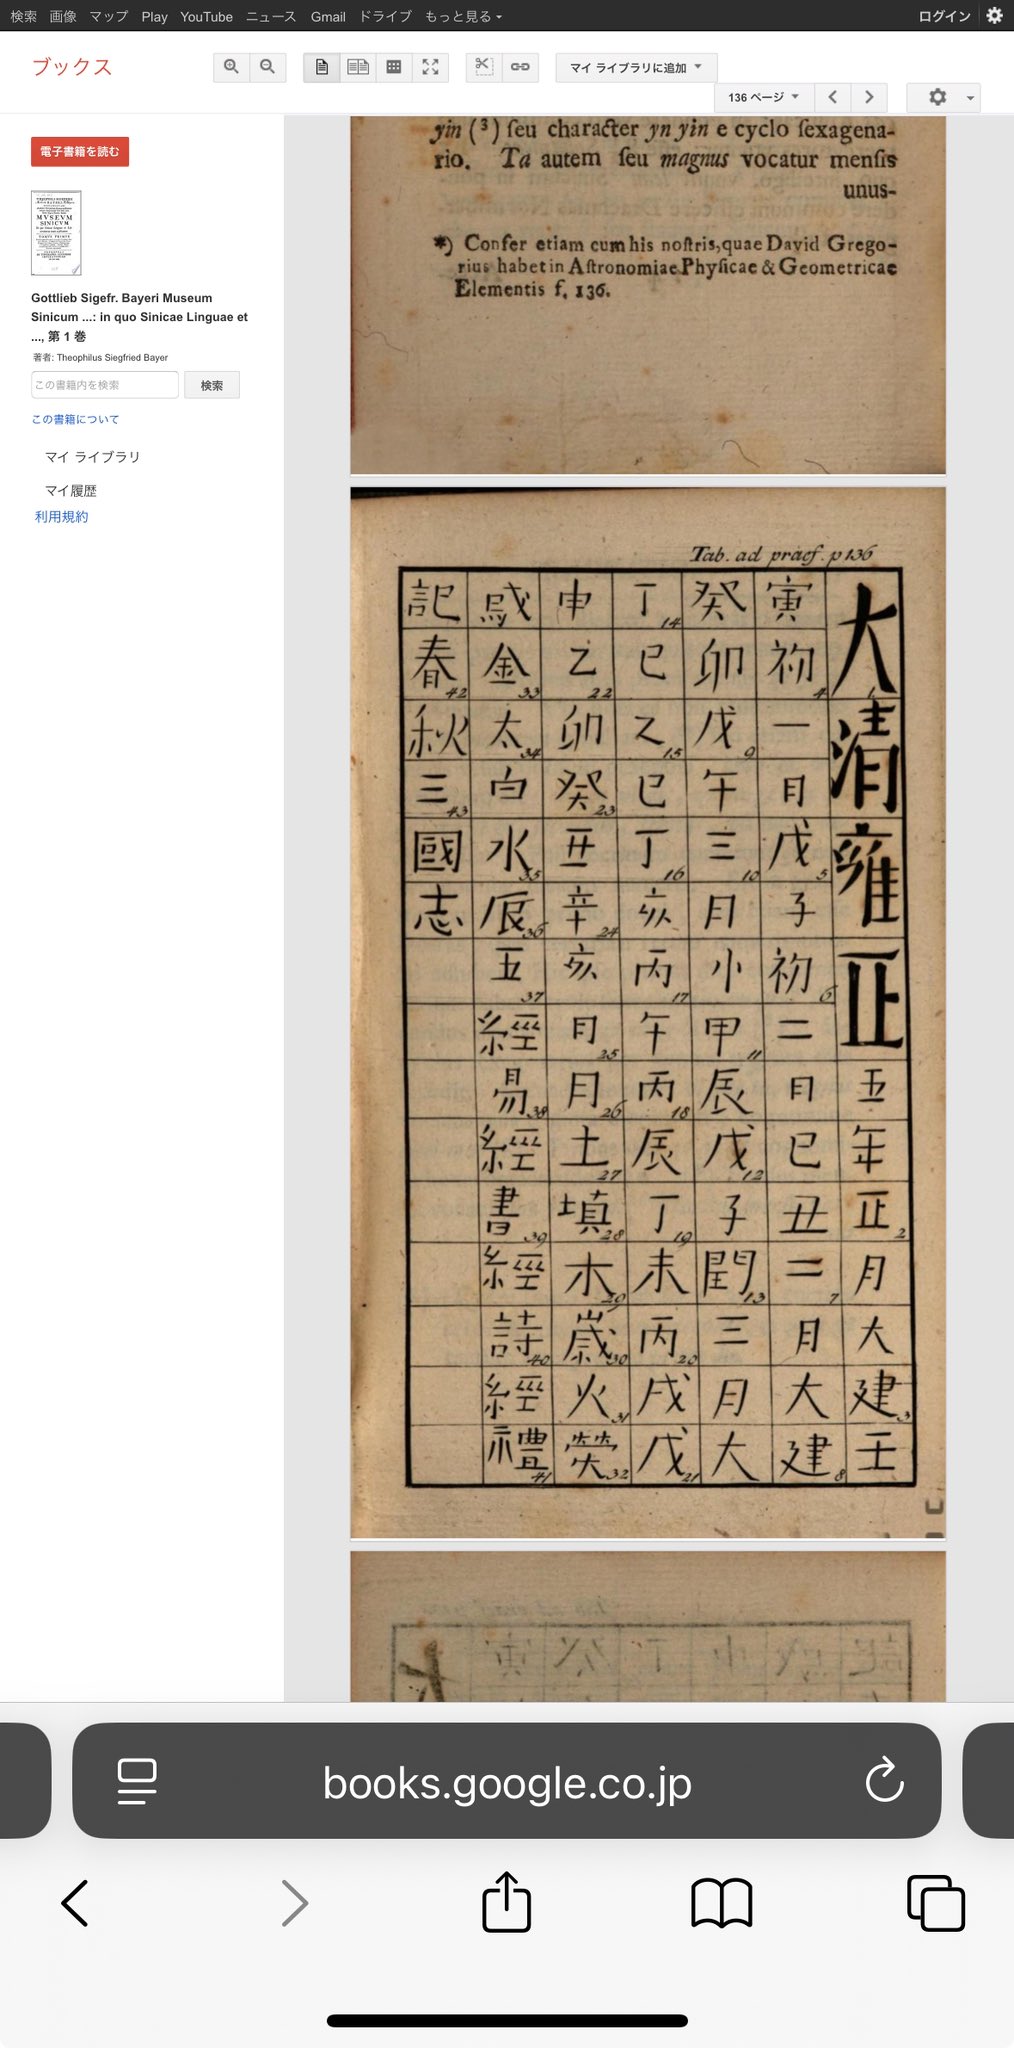 検索 画像 マップ Play YouTube ニュース Gmail ドライブ もっと見る
ログイン
ブックス
マイ ライブラリに追加
136 ページ
電子書籍を読む
Gottlieb Sigefr. Bayeri Museum
Sinicum ...: in quo Sinicae Linguae et
..., 第 1 巻
著者: Theophilus Siegfried Bayer
この書籍内を検索
検索
この書籍について
マイ ライブラリ
マイ履歴
利用規約
yin (³) ſeu character yn yin e cyclo ſexagena-
rio. Ta autem ſeu magnus vocatur menſis
unus-
*) Confer etiam cum his noſtris, quae David Grego-
rius habet in Aſtronomiae Phyſicae & Geometricae
Elementis f. 136.
Tab. ad præf. p 136
大 1 清 雍 正 五 年 正 2 月 大 建 3 壬
寅 初 4 一 日 戊 5 子 初 6 二 日 己 丑 二 7 月 大 建 8
癸 卯 戊 9 午 三 10 月 小 甲 11 辰 戊 12 子 閏 13 三 月 大
丁 14 巳 乙 15 巳 丁 16 亥 丙 17 午 丙 18 辰 丁 19 未 丙 20 戌 戊 21
申 乙 22 卯 癸 23 丑 辛 24 亥 日 25 月 26 土 27 填 28 木 29 歲 30 火 31 熒 32
惑 金 33 太 34 白 水 35 辰 36 五 37 經 易 38 經 書 39 經 詩 40 經 禮 41
記 春 42 秋 三 43 國 志
books.google.co.jp